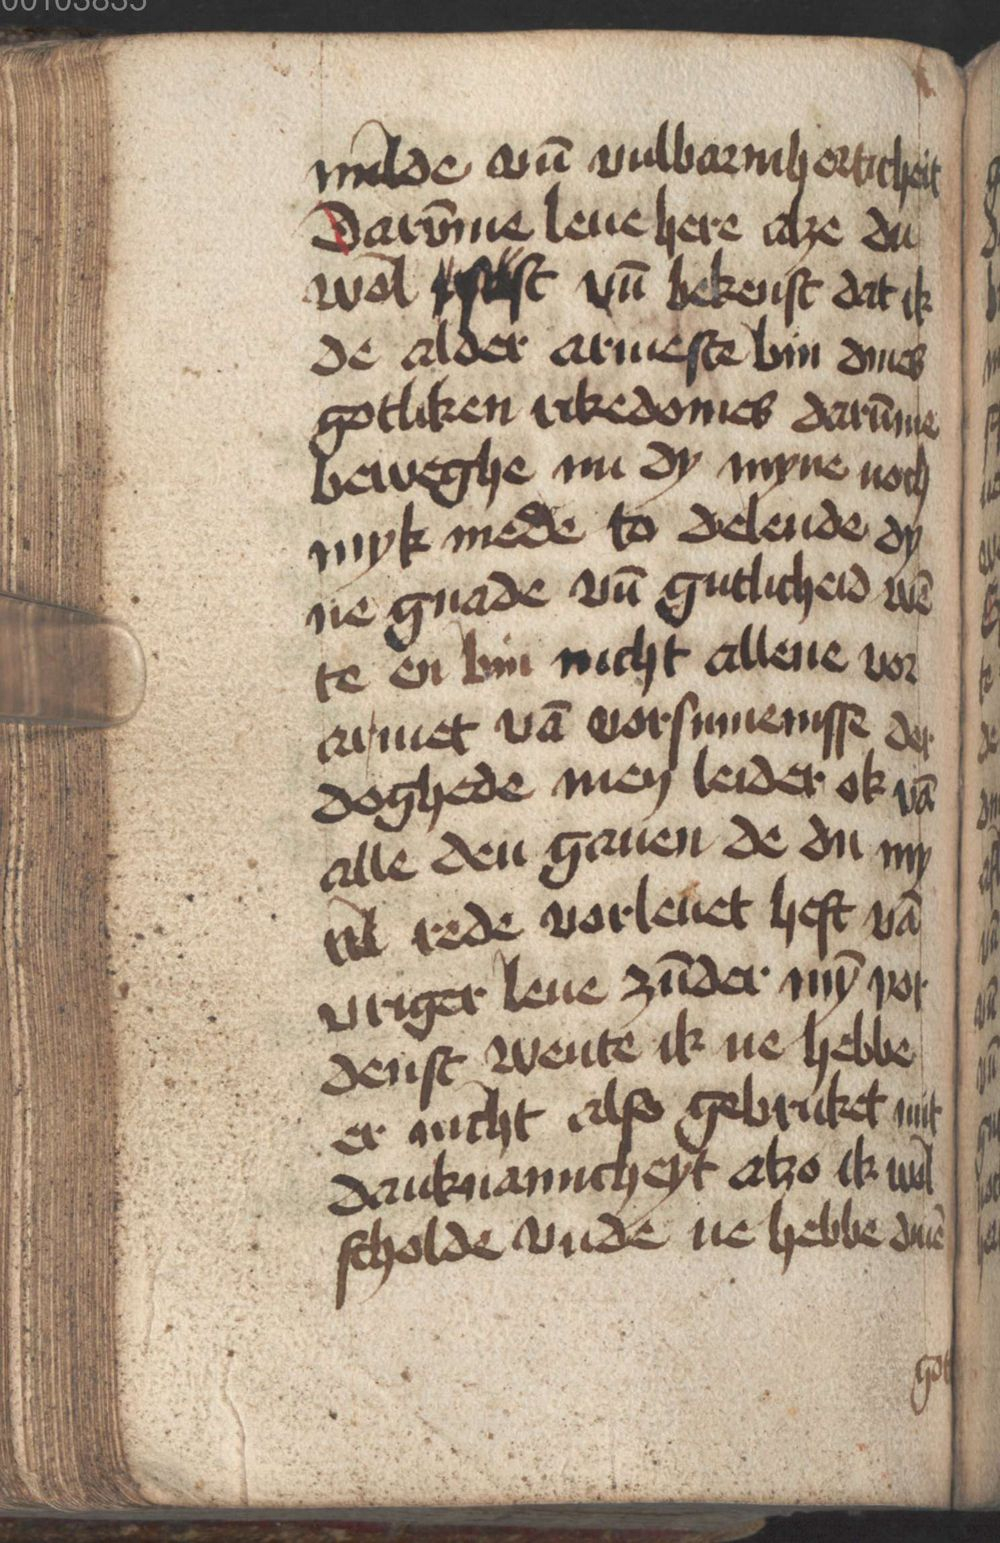 00103835
milde vnd̄ vulbarmherticheit
Darūme leue here alze du
wol st vn̄ bekenst dat ik
de alder armeste bin dines
gotliken rikedomes darūme
beweghe nu dy myne noch
myk mede to delende dy
ne gnade vn̄ gutlicheid wē
te en bin nicht allene vor
armet vā vorsumenisse der
doghede men leider ok vā
alle den gauen de du my
al rede vorlenet hest vā
vriger leue zūder mȳ vor
denst wente ik ne hebbe
er nicht also gebruket mit
danknamicheyt alzo ik wol
scholde vnde ne hebbe dinē
got